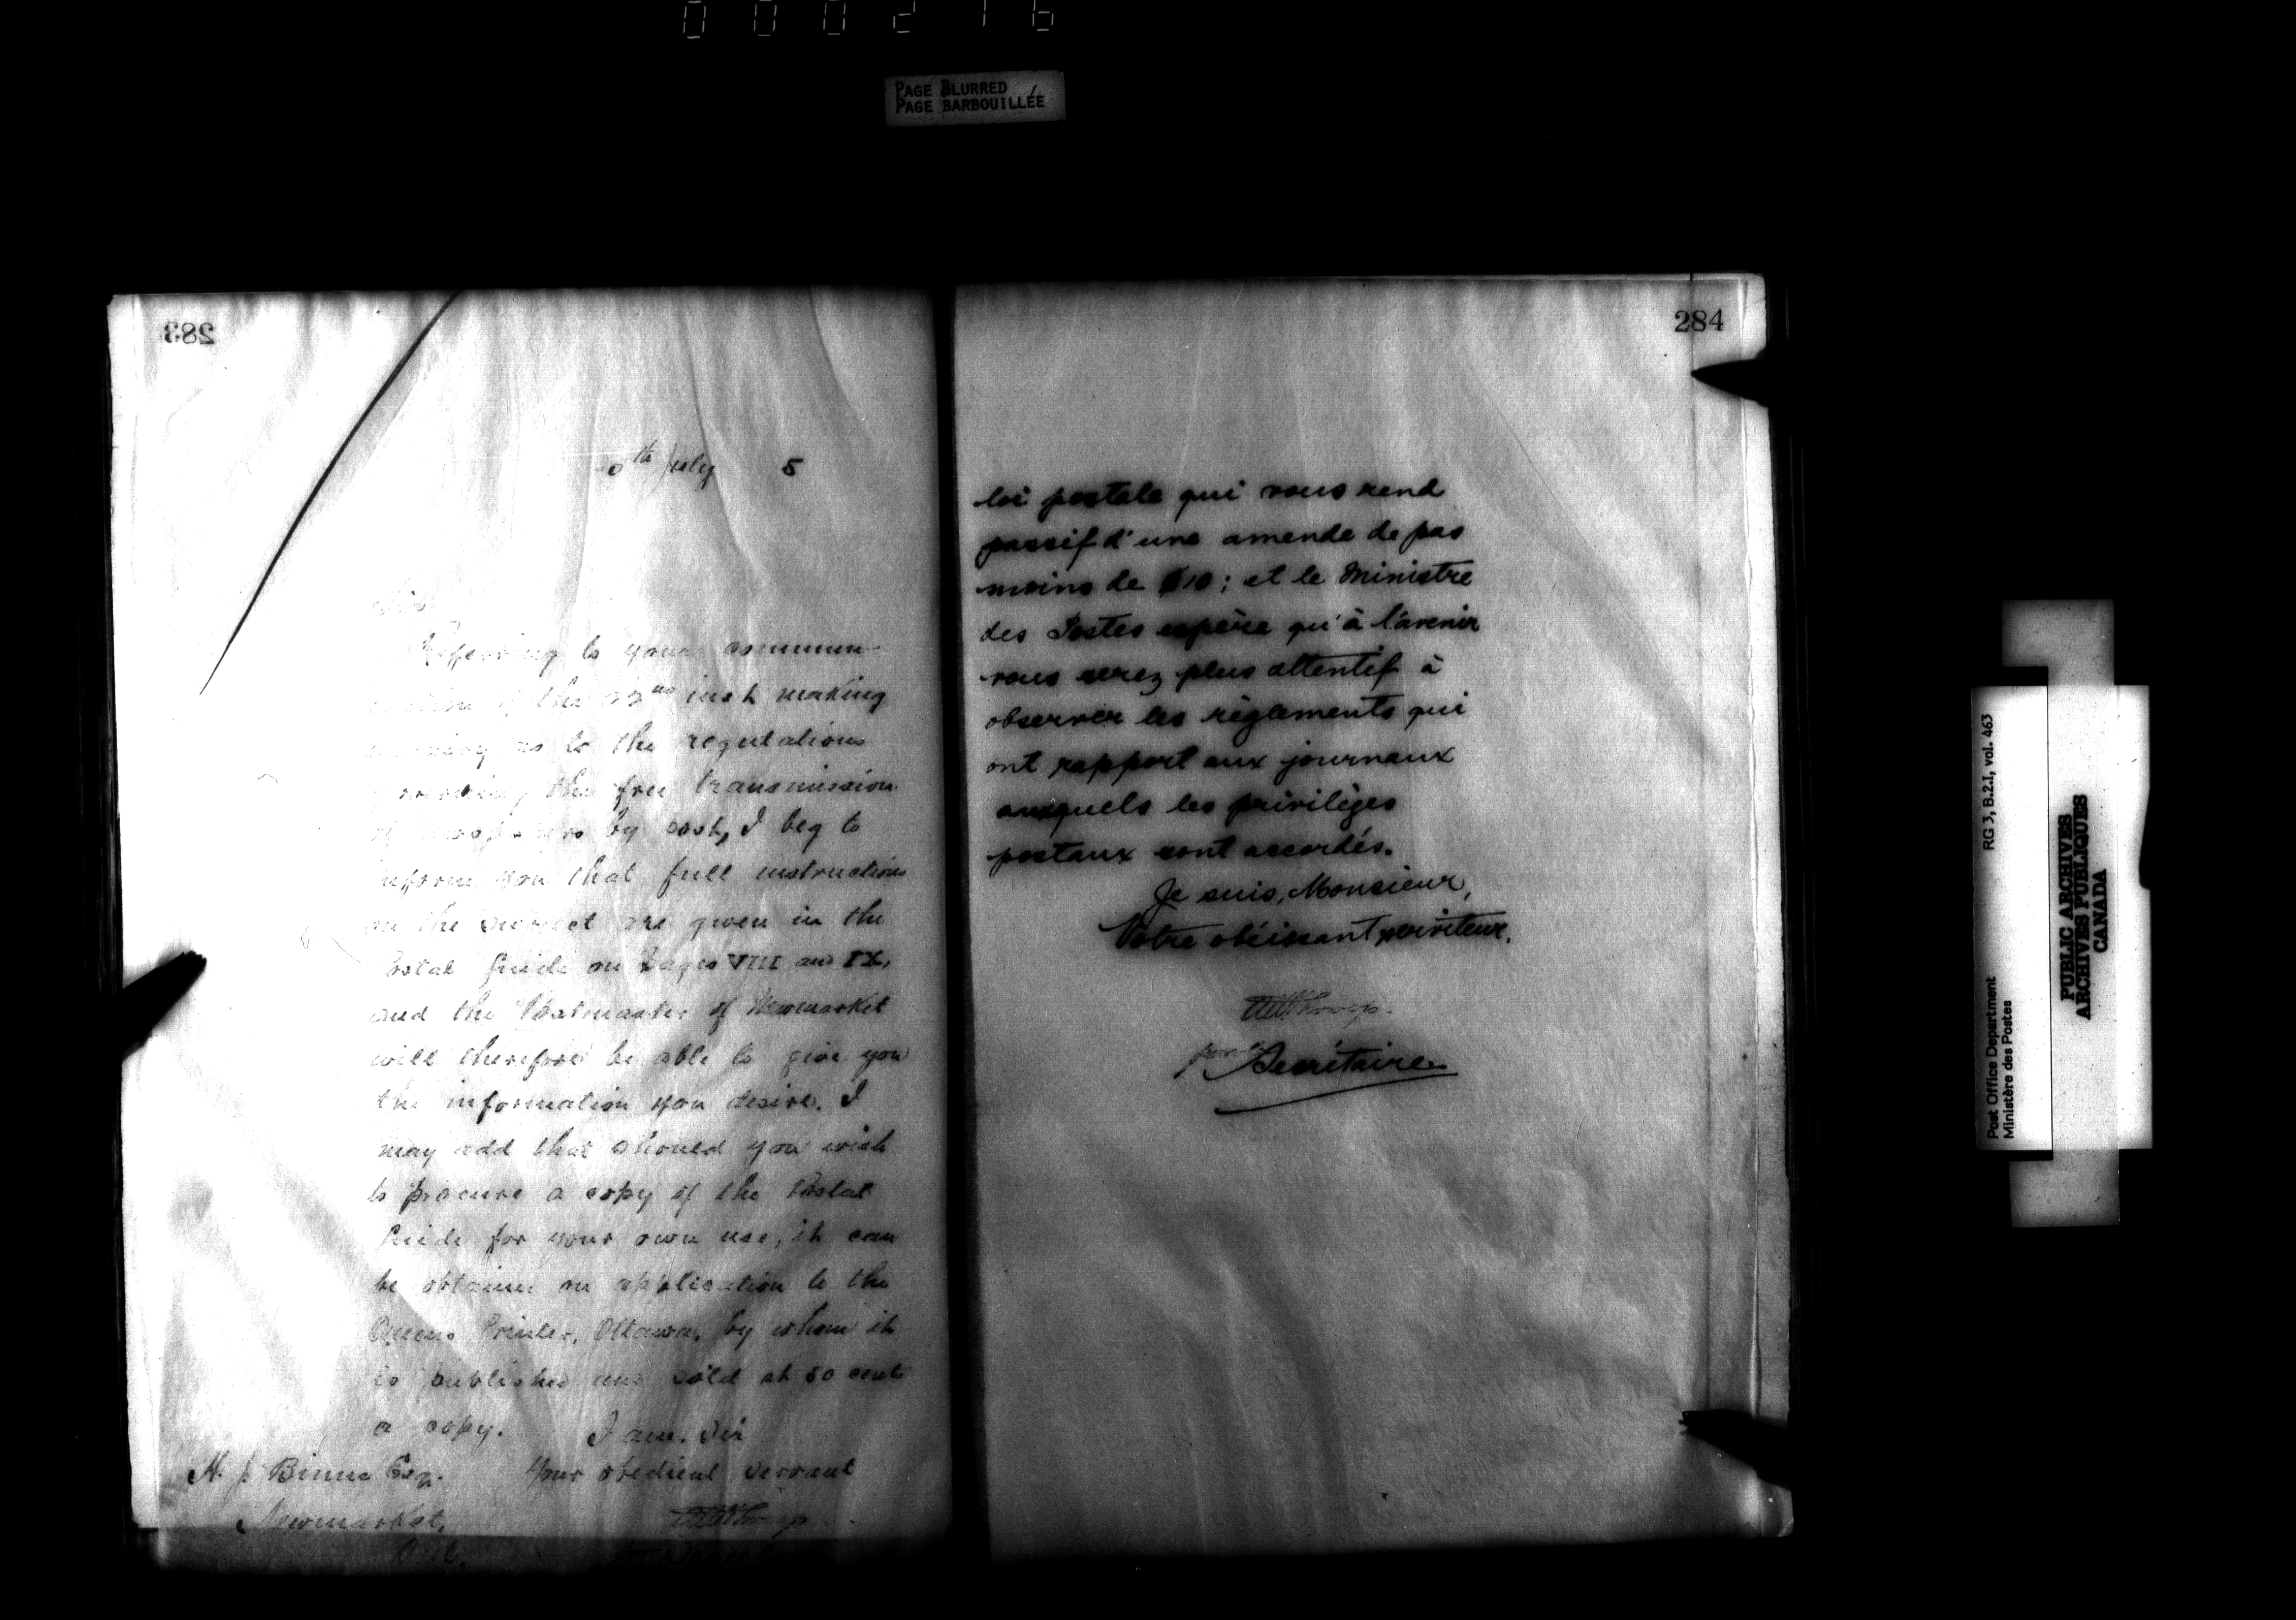 000216
PAGE BLURRED
PAGE BARBOUILLÉE
283
0th July 5
Sir
Referring to your commun-
of the inst making
as to the regulations
the free transmission
of by post, I beg to
inform you that full instructions
on the subject are given in the
Postal Guide on Pages VIII and IX,
and the Postmaster of Newmarket
will therefore be able to give you
the information you desire. I
may add that should you wish
to procure a copy of the Postal
Guide for your own use, it can
be obtained on application to the
Queens Printer, Ottawa, by whom it
is published and sold at 50 cents
a copy. I am, Sir
Your obedient servant
H. J. Esq.
Newmarket,
Ont.
284
loi postale qui vous rend
passif d'une amende de pas
moins de $10; et le Ministre
des Postes espère qu'à l'avenir
vous serez plus attentif à
observer les règlements qui
ont rapport aux journaux
auxquels les privilèges
postaux sont accordés.
Je suis, Monsieur,
Votre obéissant serviteur.
Secrétaire
RG 3, B.2.1, vol. 463
Post Office Department
Ministère des Postes
PUBLIC ARCHIVES
ARCHIVES PUBLIQUES
CANADA